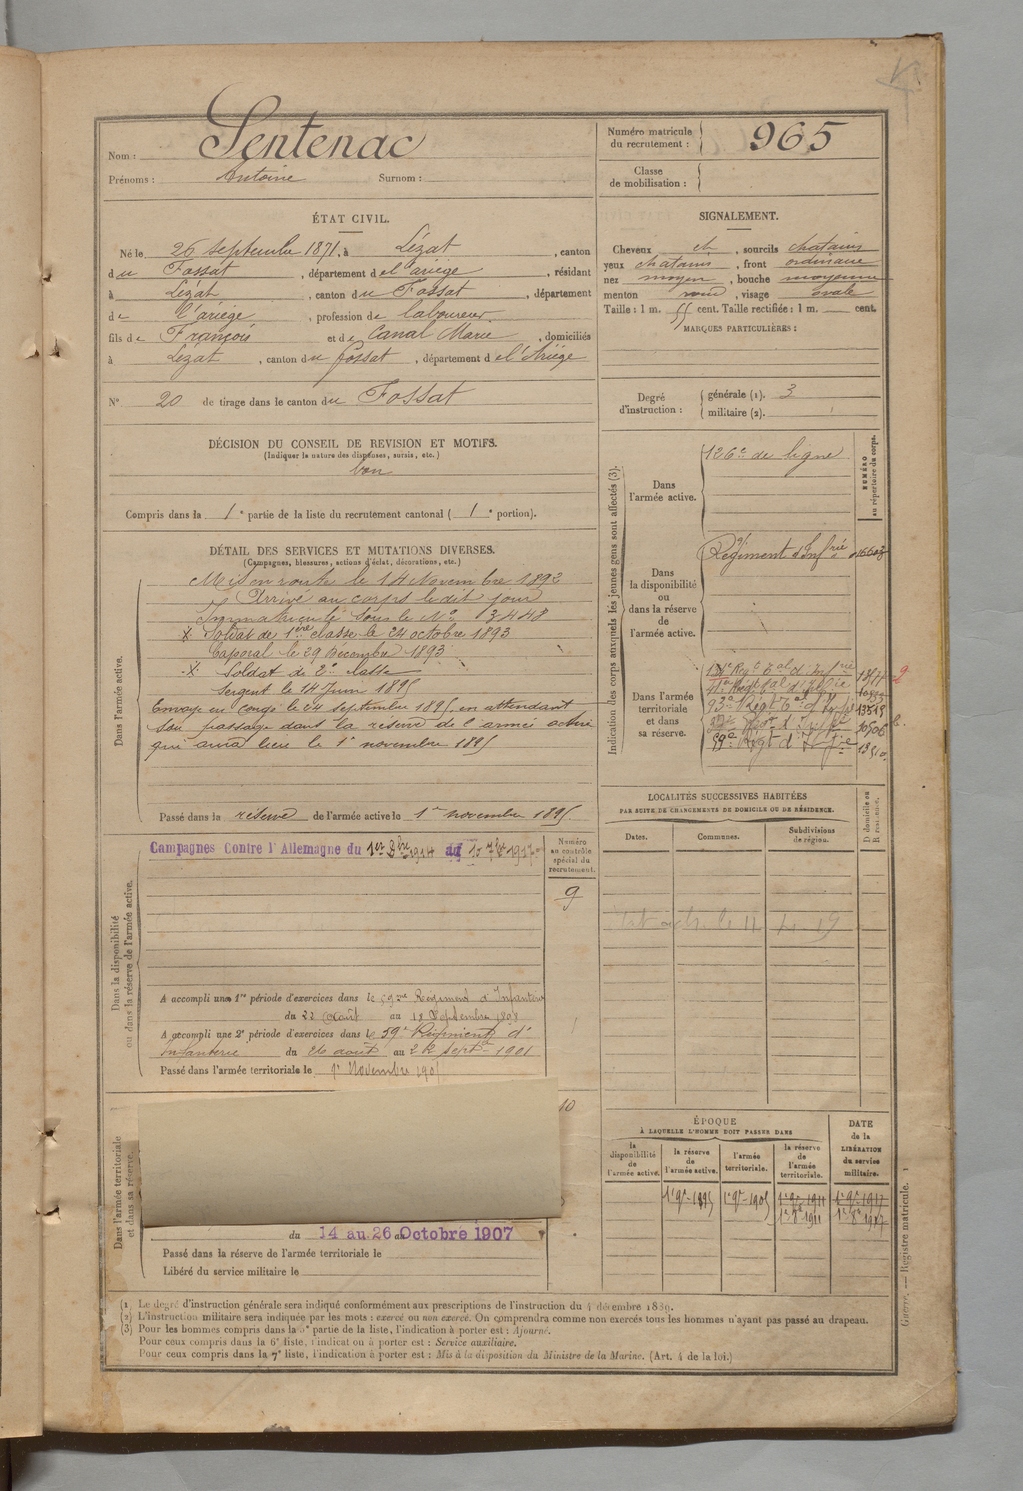 Nom : Sentenac
Prénoms : Antoine Surnom :
Numéro matricule du recrutement : 965
Classe de mobilisation :
ÉTAT CIVIL.
Né le 26 septembre 1871, à Lézat, canton
du Fossat, département de l'ariège, résidant
à Lézat, canton du Fossat, département
de l'ariège, profession de laboureur.
fils de François et de Canal Marie, domiciliés
à Lézat, canton du fossat, département de l'Ariège
N° 20 de tirage dans le canton du Fossat
SIGNALEMENT.
Cheveux ch, sourcils chatains
yeux chatains, front ordinaire
nez moyen, bouche moyenne
menton rond, visage ovale
Taille : 1 m. 55 cent. Taille rectifiée : 1 m. cent.
MARQUES PARTICULIÈRES :
Degré d'instruction : générale (1). 3
militaire (2).
DÉCISION DU CONSEIL DE REVISION ET MOTIFS.
(Indiquer la nature des dispenses, sursis, etc.)
bon
Compris dans la 1e partie de la liste du recrutement cantonal (1e portion).
DÉTAIL DES SERVICES ET MUTATIONS DIVERSES.
(Campagnes, blessures, actions d'éclat, décorations, etc.)
Dans l'armée active.
Mis en route le 14 Novembre 1892
Arrivé au corps le dit jour
Immatriculé sous le No 3448
X Soldat de 1ère classe le 24 octobre 1893
Caporal le 29 Décembre 1893
X Soldat de 2e classe
Sergent le 14 Juin 1895
Envoyé en congé le 24 septembre 1895, en attendant
son passage dans la réserve de l'armé active
qui aura lieu le 1er novembre 1895
Passé dans la réserve de l'armée active le 1er novembre 1895
Indication des corps auxquels les jeunes gens sont affectés (3).
NUMÉRO au répertoire du corps.
Dans l'armée active.
126e de ligne
Dans la disponibilité ou dans la réserve de l'armée active.
Régiment d'Infrie
Dans l'armée territoriale et dans sa réserve.
93e Régt
59e Régt d'Infie
LOCALITÉS SUCCESSIVES HABITÉES
PAR SUITE DE CHANGEMENTS DE DOMICILE OU DE RÉSIDENCE.
Dates. Communes. Subdivisions de région. D domicile ou R résidence.
Dans la disponibilité ou dans la réserve de l'armée active.
Campagnes Contre l'Allemagne du 1er 1914 au 1917
Numéro au contrôle spécial du recrutement.
9
A accompli une 1re période d'exercices dans le 59me Régiment d'Infanterie
du 22 Août au 18 Septembre 1898
A accompli une 2e période d'exercices dans le 59e Régiment d'
Infanterie du 26 août au 22 septre 1901
Passé dans l'armée territoriale le 1er Novembre 1905
Dans l'armée territoriale et dans sa réserve.
10
du 14 au 26 Octobre 1907
Passé dans la réserve de l'armée territoriale le
Libéré du service militaire le
ÉPOQUE
À LAQUELLE L'HOMME DOIT PASSER DANS
la disponibilité de l'armée active.
la réserve de l'armée active.
l'armée territoriale.
la réserve de l'armée territoriale.
DATE de la LIBÉRATION du service militaire.
1er 9e 1895 1er 9e 1905 1er 9e 1911 1er 9e 1917
1er 8e 1911 1er 8e 1917
(1) Le degré d'instruction générale sera indiqué conformément aux prescriptions de l'instruction du 4 décembre 1889.
(2) L'instruction militaire sera indiquée par les mots : exercé ou non exercé. On comprendra comme non exercés tous les hommes n'ayant pas passé au drapeau.
(3) Pour les hommes compris dans la 5e partie de la liste, l'indication à porter est : Ajourné.
Pour ceux compris dans la 6e liste, l'indication à porter est : Service auxiliaire.
Pour ceux compris dans la 7e liste, l'indication à porter est : Mis à la disposition du Ministre de la Marine. (Art. 4 de la loi.)
Guerre. — Registre matricule. 1